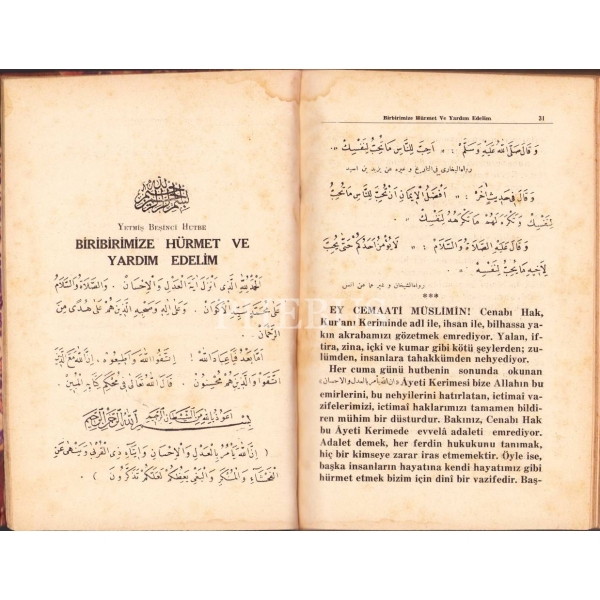 Yetmiş Beşinci Hutbe
BİRİBİRİMİZE HÜRMET VE
YARDIM EDELİM
اَلْحَمْدُ لِلّٰهِ الَّذِى اَنْزَلَ آيَةَ الْعَدْلِ وَالْاِحْسَانِ . وَالصَّلَاةُ وَالسَّلَامُ
عَلَى مُحَمَّدٍ سَيِّدِ الْاَكْوَانِ . وَعَلَى اٰلِهِ وَصَحْبِهِ الَّذِينَ هُمْ عَلَى هُدًى مِنَ
الرَّحْمٰنِ .
اَمَّا بَعْدُ فَيَاعِبَادَ اللّٰهِ ! اِتَّقُوا اللّٰهَ وَاَطِيعُوهُ . اِنَّ اللّٰهَ مَعَ الَّذِينَ
اتَّقَوْا وَالَّذِينَ هُمْ مُحْسِنُونَ . قَالَ اللّٰهُ تَعَالَى فِى مُحْكَمِ كِتَابِهِ الْمُبِينِ .
اعوذ بالله من الشيطان الرجيم
بسم الله الرحمن الرحيم
( اِنَّ اللّٰهَ يَأْمُرُ بِالْعَدْلِ وَالْاِحْسَانِ وَاِيتَاءِ ذِى الْقُرْبَى وَيَنْهَى عَنِ
الْفَحْشَاءِ وَالْمُنْكَرِ وَالْبَغْىِ يَعِظُكُمْ لَعَلَّكُمْ تَذَكَّرُونَ ) .
Birbirimize Hürmet Ve Yardım Edelim 31
وَ قَالَ صَلَّى اللّٰهُ عَلَيْهِ وَسَلَّمَ : « اَحِبَّ لِلنَّاسِ مَا تُحِبُّ لِنَفْسِكَ » .
رواه البخارى فى التاريخ و غيره عن يزيد بن اسيد
وَ قَالَ فِى حَدِيثٍ اٰخَرَ : « اَفْضَلُ الْاِيمَانِ اَنْ تُحِبَّ لِلنَّاسِ مَا تُحِبُّ
لِنَفْسِكَ وَ تَكْرَهَ لَهُمْ مَا تَكْرَهُ لِنَفْسِكَ » .
وَ قَالَ عَلَيْهِ الصَّلَاةُ وَالسَّلَامُ : « لَا يُؤْمِنُ اَحَدُكُمْ حَتَّى يُحِبَّ
لِاَخِيهِ مَا يُحِبُّ لِنَفْسِهِ » .
رواه الشيخان و غيرهما عن انس
***
EY CEMAATİ MÜSLİMİN! Cenabı Hak,
Kur'anı Keriminde adl ile, ihsan ile, bilhassa ya-
kın akrabamızı gözetmek emrediyor. Yalan, if-
tira, zina, içki ve kumar gibi kötü şeylerden; zu-
lümden, insanlara tahakkümden nehyediyor.
Her cuma günü hutbenin sonunda okunan
(ان الله يأمر بالعدل والاحسان) Âyeti Kerimesi bize Allahın bu
emirlerini, bu nehyilerini hatırlatan, ictimaî va-
zifelerimizi, ictimaî haklarımızı tamamen bildi-
ren mühim bir düsturdur. Bakınız, Cenabı Hak
bu Âyeti Kerimede evvelâ adaleti emrediyor.
Adalet demek, her ferdin hukukunu tanımak,
hiç bir kimseye zarar iras etmemektir. Öyle ise,
başka insanların hayatına kendi hayatımız gibi
hürmet etmek bizim için dinî bir vazifedir. Baş-